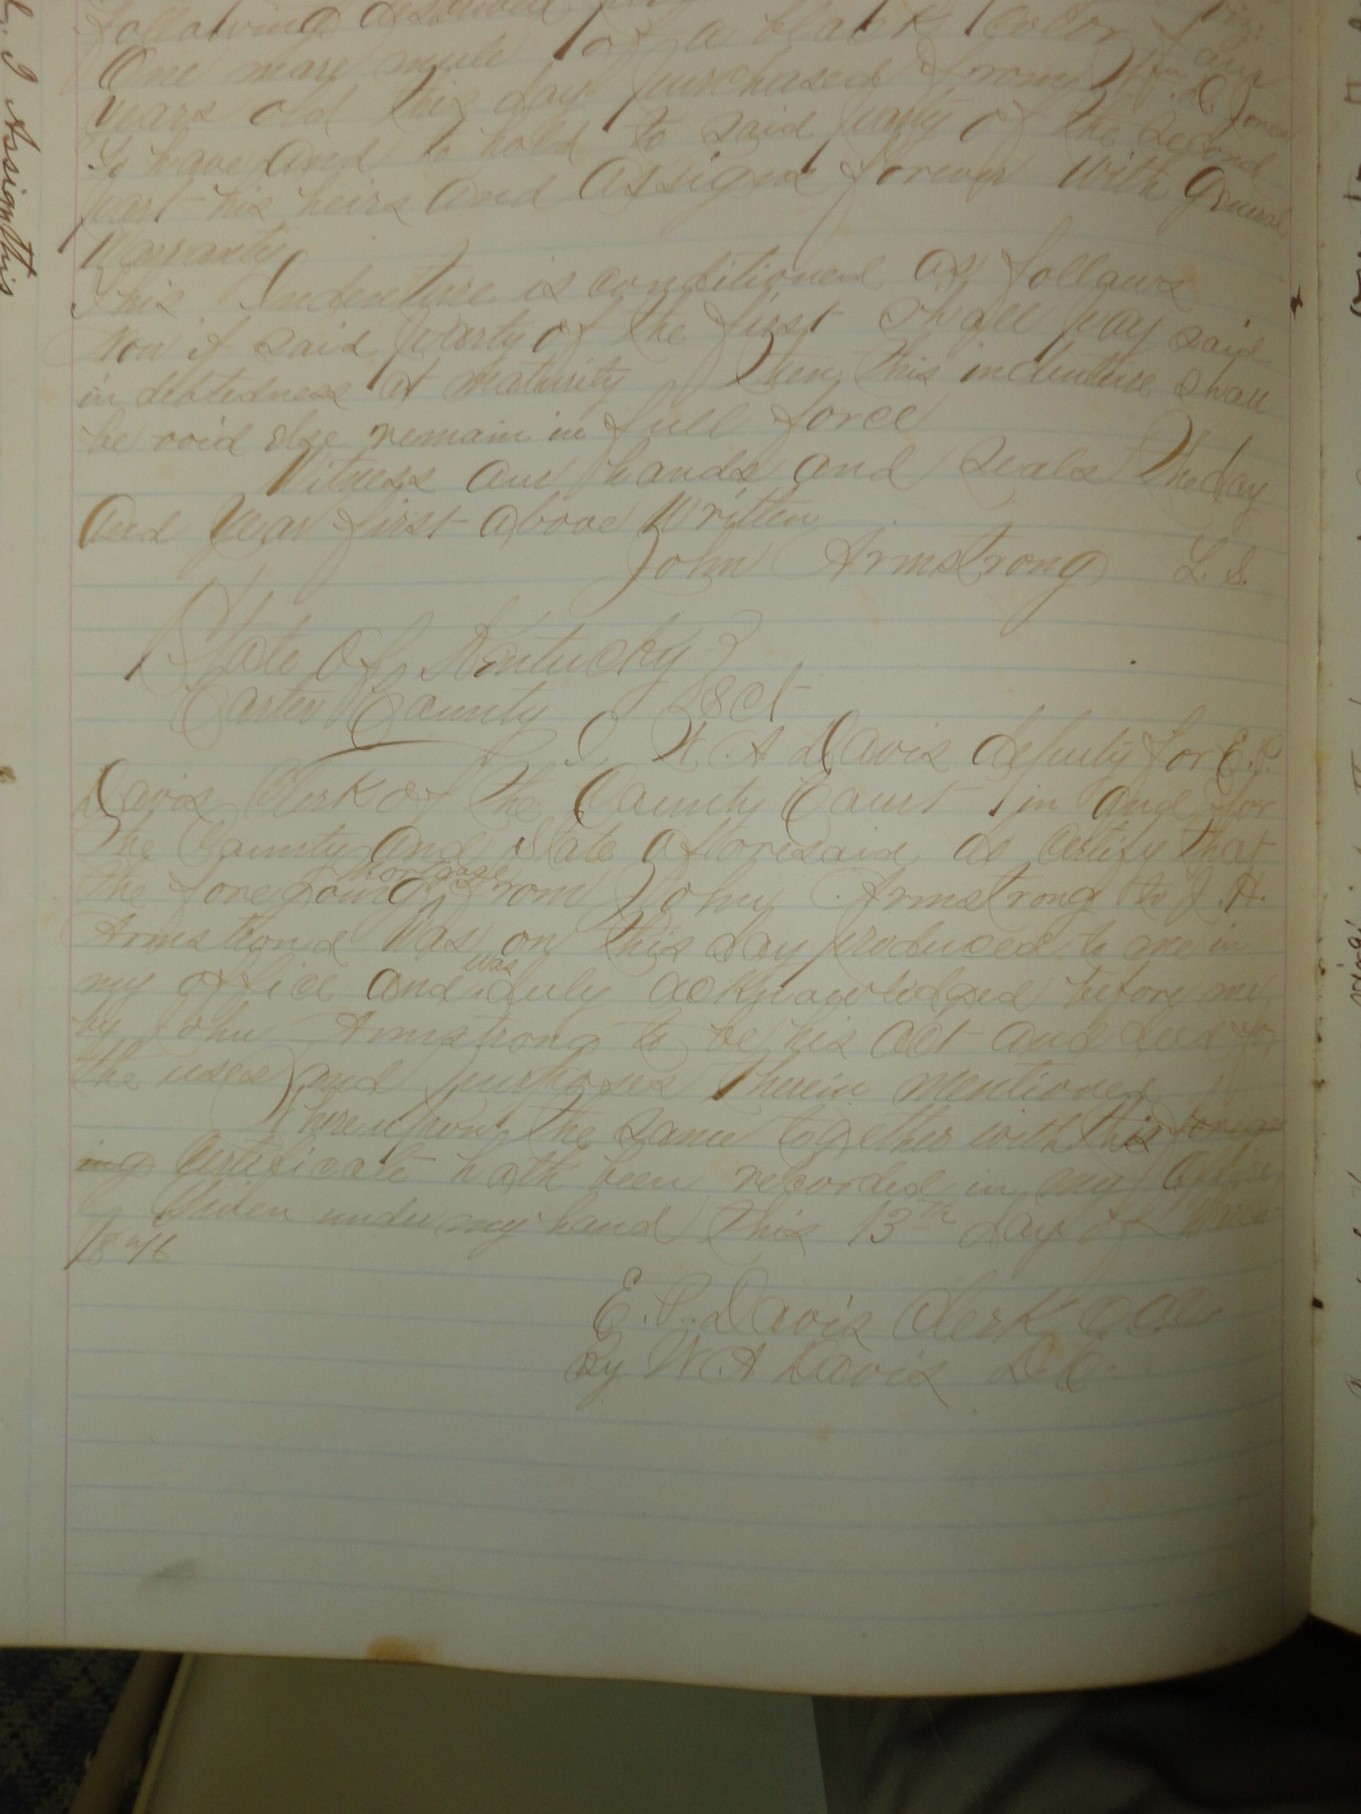 following described viz:
One mare mule of a black color four
years old this day purchased from Wm. C Jones
To have and to hold to said party of the second
part his heirs and assigns forever with General
Warranty
This Indenture is conditioned as follows
Now if said party of the first shall pay said
indebtedness at maturity Then this indenture shall
be void else remain in full force
Witness our hands and seals The day
and year first above Written
John Armstrong L.S.
State of Kentucky
Carter County Sct
I W. A Davis deputy for E.P.
Davis Clerk of the County Court in and for
the County and State afforesaid do certify that
the foregoing mortgage from John Armstrong to J. H.
Armstrong was on this day produced to me in
my office and was duly acknowledged before me
by John Armstrong to be his act and deed for
the uses and purposes therein mentioned
Whereupon the same together with this forego
ing certificate hath been recorded in my office
Given under my hand this 13th day of March
1876
E. P. Davis Clerk C.C.C.
By W A Davis D.C.
I Assign this